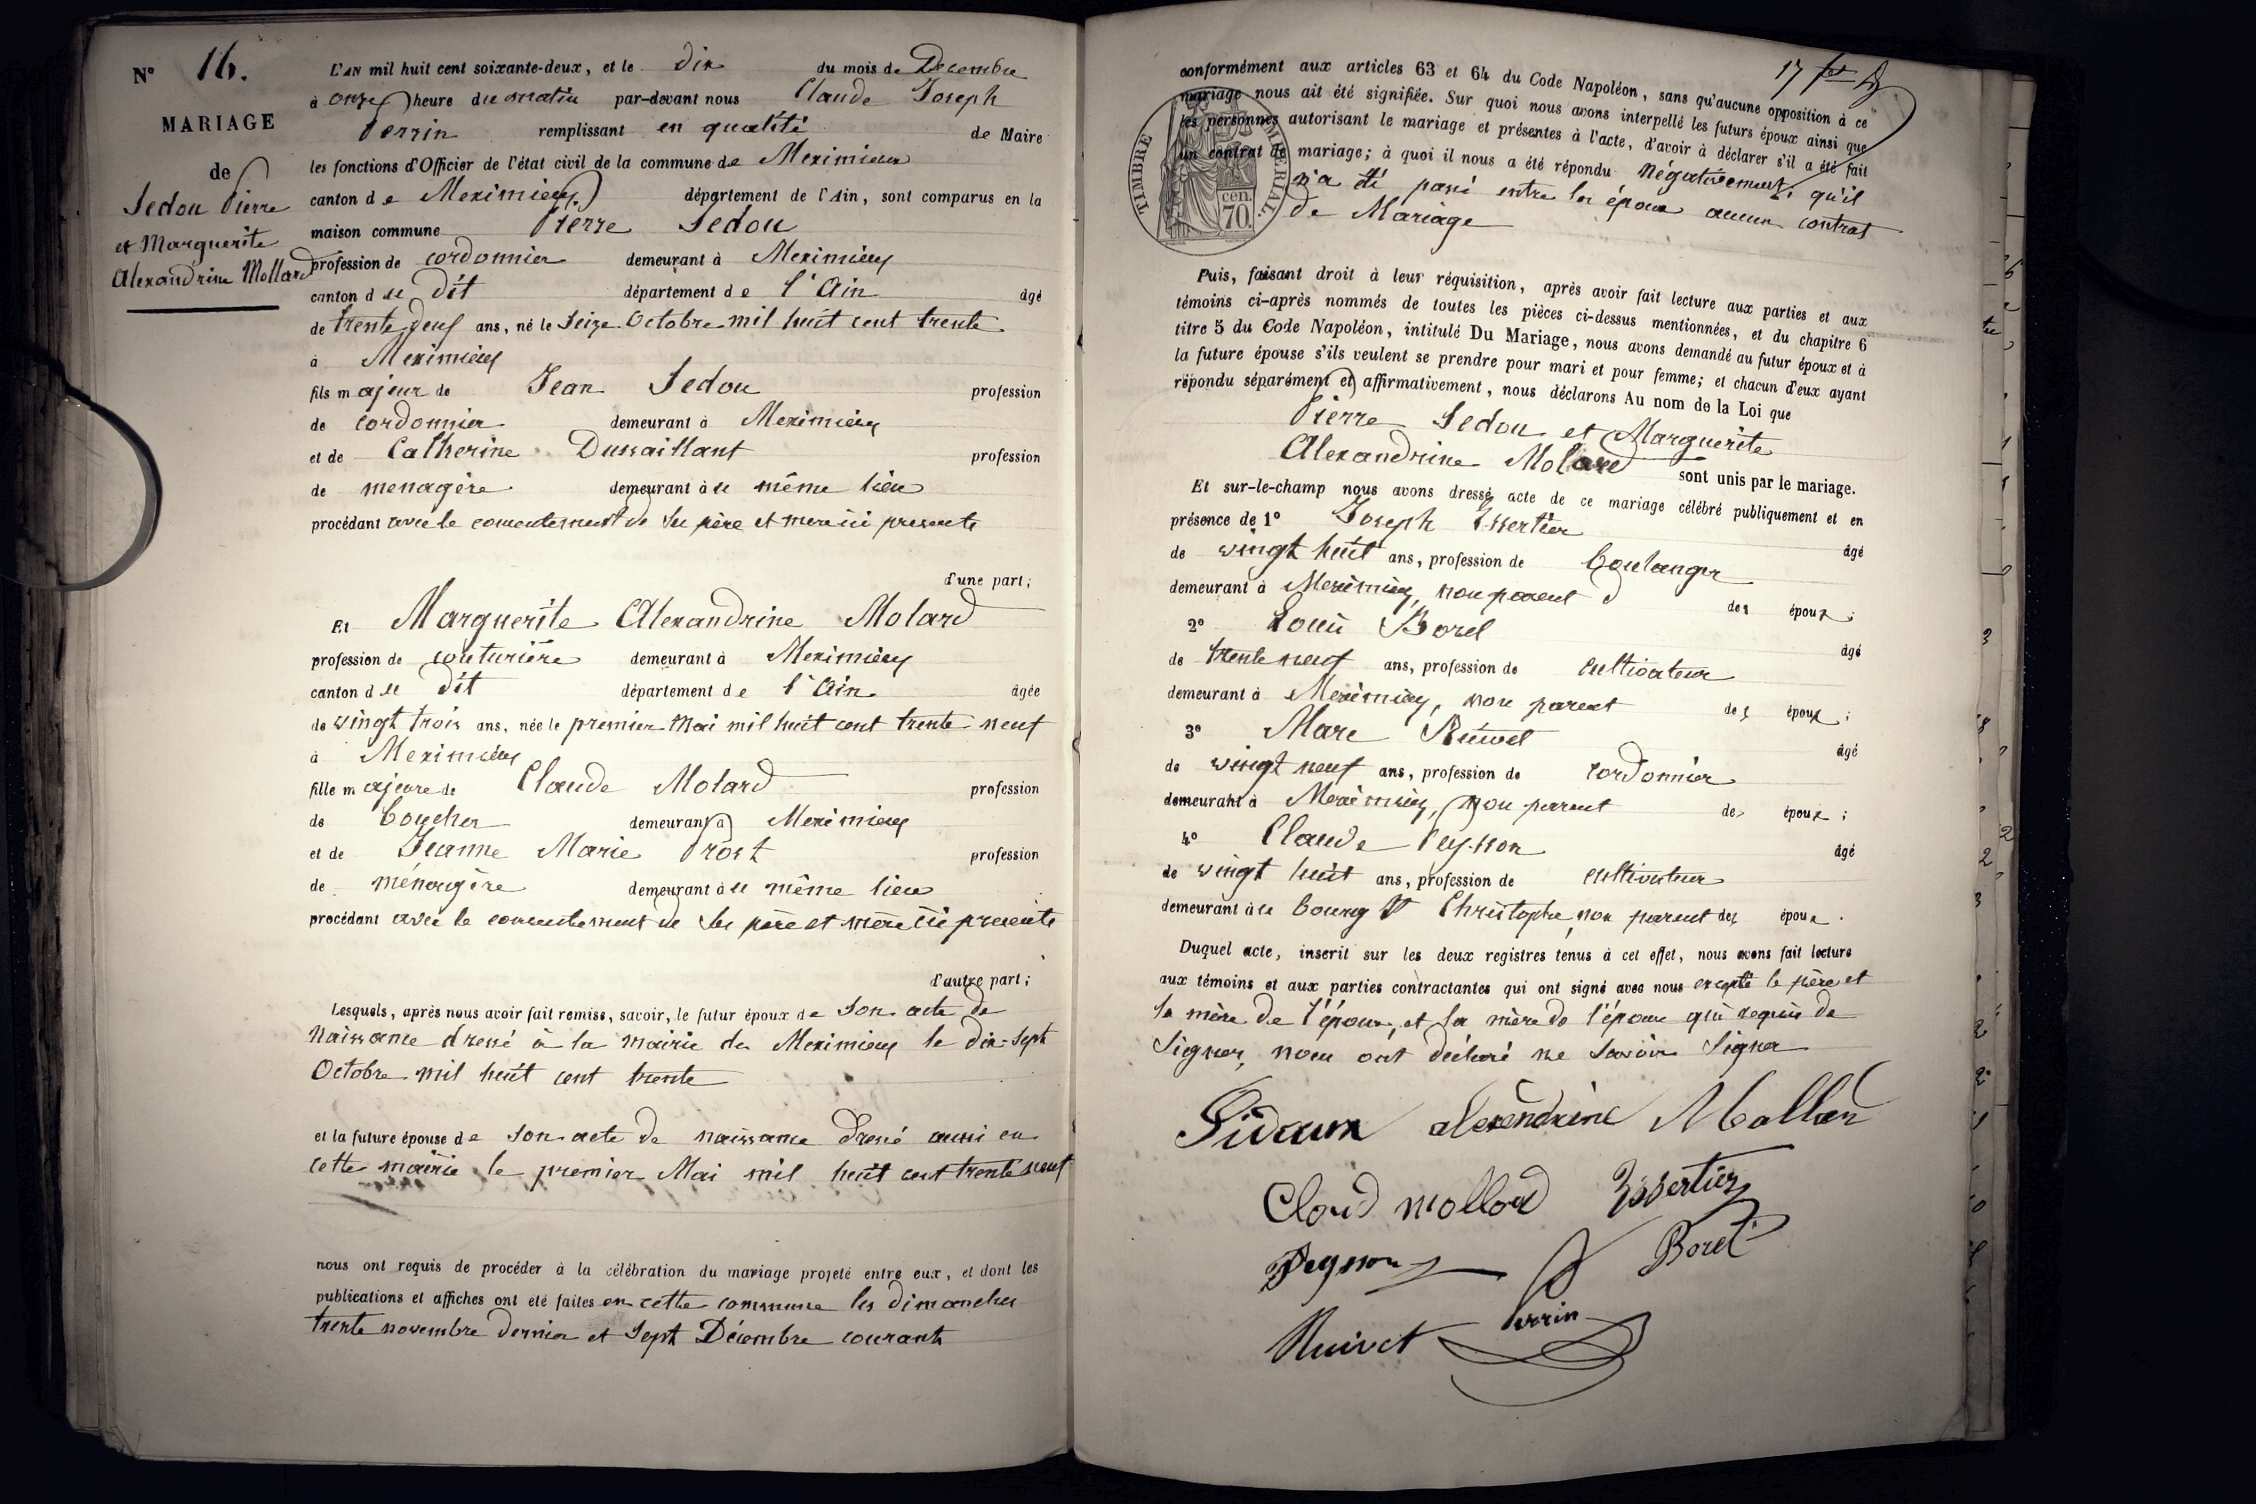 N° 16.
MARIAGE
de
Sedou Pierre
et Marguerite
Alexandrine Mollard
L'AN mil huit cent soixante-deux, et le dix du mois de Décembre
à onze heure du matin par-devant nous Claude Joseph
Perrin remplissant en qualité de Maire
les fonctions d'Officier de l'état civil de la commune de Meximieux
canton de Meximieux département de l'Ain, sont comparus en la
maison commune Pierre Sedou
profession de cordonnier demeurant à Meximieux
canton d u dit département de l'Ain âgé
de trente deux ans, né le seize Octobre mil huit cent trente
à Meximieux
fils majeur de Jean Sedou profession
de cordonnier demeurant à Meximieux
et de Catherine Dussaillant profession
de menagère demeurant à u même lieu
procédant avec le consentement de ses père et mère ici presents
d'une part;
Et Marguerite Alexandrine Molard
profession de couturière demeurant à Meximieux
canton d u dit département de l'Ain âgée
de vingt trois ans, née le premier Mai mil huit cent trente neuf
à Meximieux
fille majeure de Claude Molard profession
de boucher demeurant à Meximieux
et de Jeanne Marie Prost profession
de ménagère demeurant à u même lieu
procédant avec le consentement de ses père et mère ici presents
d'autre part;
Lesquels, après nous avoir fait remise, savoir, le futur époux de son acte de
naissance dressé à la mairie de Meximieux le dix-sept
Octobre mil huit cent trente
et la future épouse de son acte de naissance dressé aussi en
cette mairie le premier Mai mil huit cent trente neuf
nous ont requis de procéder à la célébration du mariage projeté entre eux, et dont les
publications et affiches ont été faites en cette commune les dimanches
trente novembre dernier et sept Décembre courant
17
conformément aux articles 63 et 64 du Code Napoléon, sans qu'aucune opposition à ce
mariage nous ait été signifiée. Sur quoi nous avons interpellé les futurs époux ainsi que
les personnes autorisant le mariage et présentes à l'acte, d'avoir à déclarer s'il a été fait
un contrat de mariage; à quoi il nous a été répondu négativement, qu'il
n'a été passé entre les époux aucun contrat
de Mariage
TIMBRE IMPÉRIAL.
70 cen.
Puis, faisant droit à leur réquisition, après avoir fait lecture aux parties et aux
témoins ci-après nommés de toutes les pièces ci-dessus mentionnées, et du chapitre 6
titre 5 du Code Napoléon, intitulé Du Mariage, nous avons demandé au futur époux et à
la future épouse s'ils veulent se prendre pour mari et pour femme; et chacun d'eux ayant
répondu séparément et affirmativement, nous déclarons Au nom de la Loi que
Pierre Sedou et Marguerite
Alexandrine Molard sont unis par le mariage.
Et sur-le-champ nous avons dressé acte de ce mariage célébré publiquement et en
présence de 1° Joseph Issertier âgé
de vingt huit ans, profession de boulanger
demeurant à Meximieux, non parent des époux;
2° Louis Borel âgé
de trente neuf ans, profession de cultivateur
demeurant à Meximieux, non parent des époux;
3° Marc Ruivet âgé
de vingt neuf ans, profession de cordonnier
demeurant à Meximieux, non parent des époux;
4° Claude Peysson âgé
de vingt huit ans, profession de cultivateur
demeurant à u bourg St Christophe, non parent des époux.
Duquel acte, inscrit sur les deux registres tenus à cet effet, nous avons fait lecture
aux témoins et aux parties contractantes qui ont signé avec nous excepté le père et
la mère de l'époux, et la mère de l'épouse qui requis de
signer, nous ont déclaré ne savoir signer
alexendrine Mollar
Cloud mollard Issertier
Borel
Perrin
Ruivet